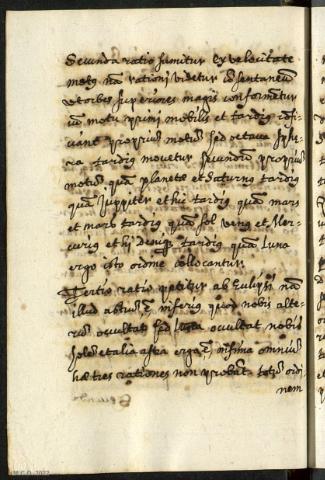 Secunda ratio sumitur ex velocitate
motus nã rationi videtur cõsentaneũ
ut orbes superiores magis conformentur
cũ motu primi mobilis et tardius
motus sed octava Sphę-
ra tardius movetur secundum proprium
motum quam planetę et Saturnus tardius
quam Juppiter et hic tardius quam mars
et mars tardius quam sol venus et Mer-
curius et hi deniq tardius quam Luna
ergo isto ordine collocantur
Tertia ratio petitur ab Eclypsi nã
illud est inferius quod nobis alte-
rum occultat sed luna occultat nobis
solem et alia astra ergo est infima omnium
hæ tres rationes non probant totum ordi
nem